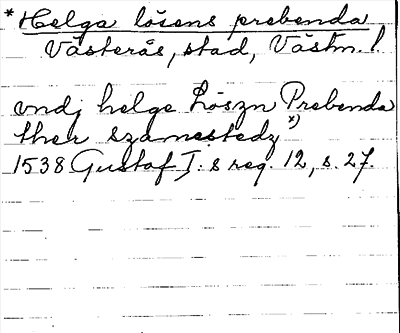 * Helga lösens prebenda
Västerås, stad, Västm. l.
vndj helge Löszn Prebenda
ther szamestedz x)
1538 Gustaf I:s reg. 12, s. 27.